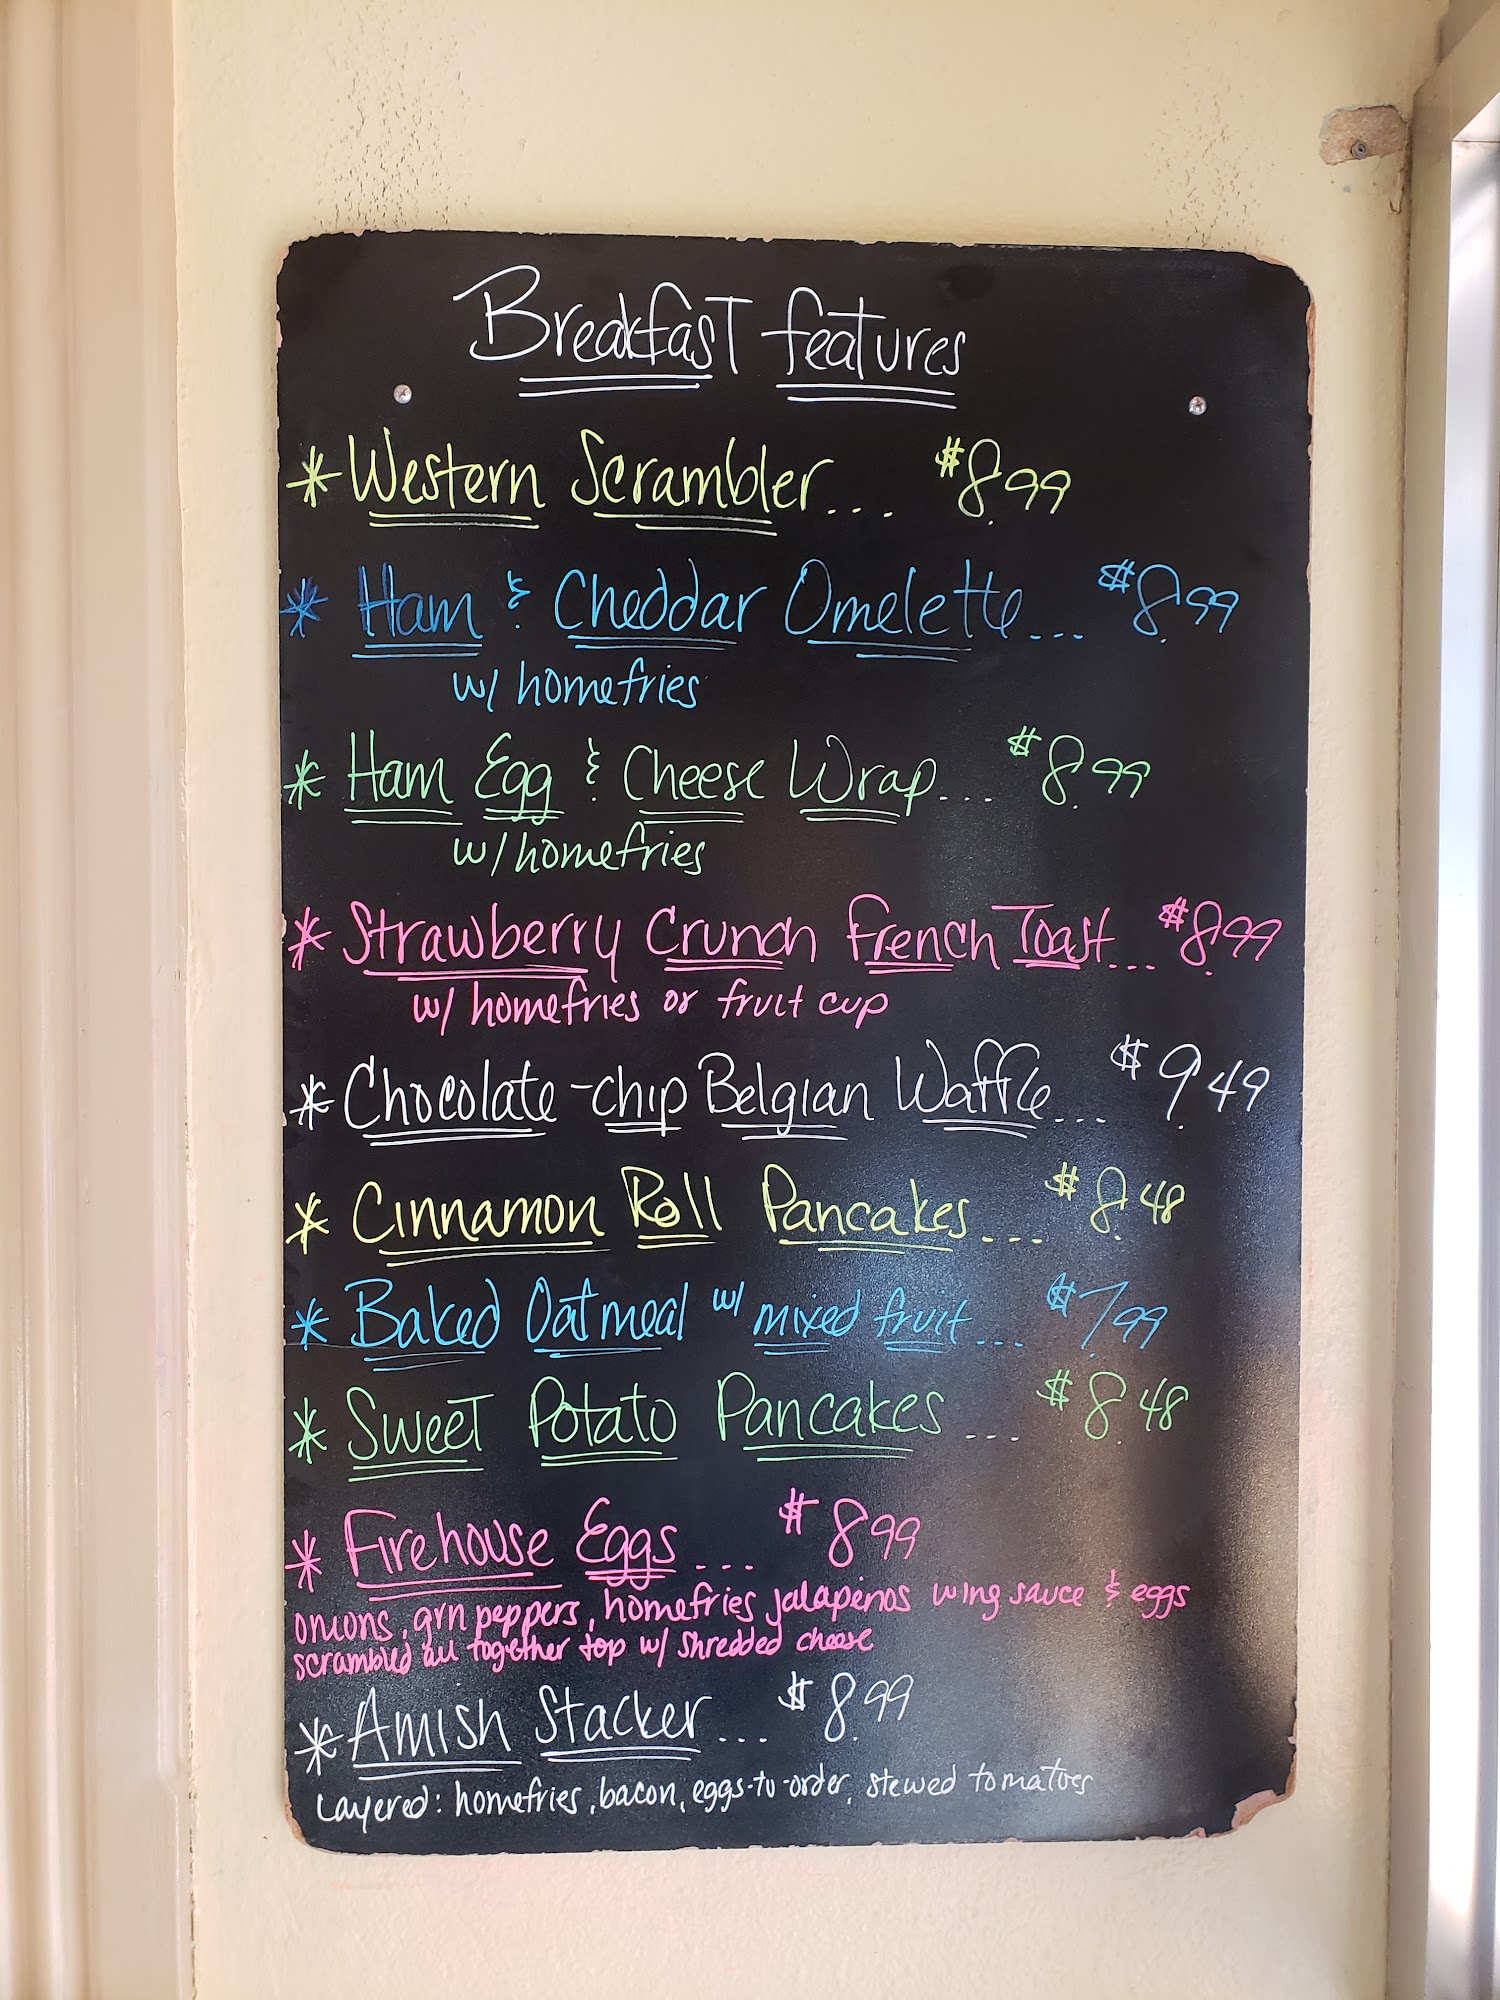 Breakfast features
* Western Scrambler... $8.99
* Ham & Cheddar Omelette... $8.99
w/ homefries
* Ham Egg & Cheese Wrap... $8.99
w/ homefries
* Strawberry Crunch French Toast... $8.99
w/ homefries or fruit cup
* Chocolate-chip Belgian Waffle... $9.49
* Cinnamon Roll Pancakes... $8.48
* Baked Oatmeal w/ mixed fruit... $7.99
* Sweet Potato Pancakes... $8.48
* Firehouse Eggs... $8.99
onions, grn peppers, homefries jalapenos wing sauce & eggs
scrambled all together top w/ shredded cheese
* Amish Stacker... $8.99
Layered: homefries, bacon, eggs-to-order, stewed tomatoes